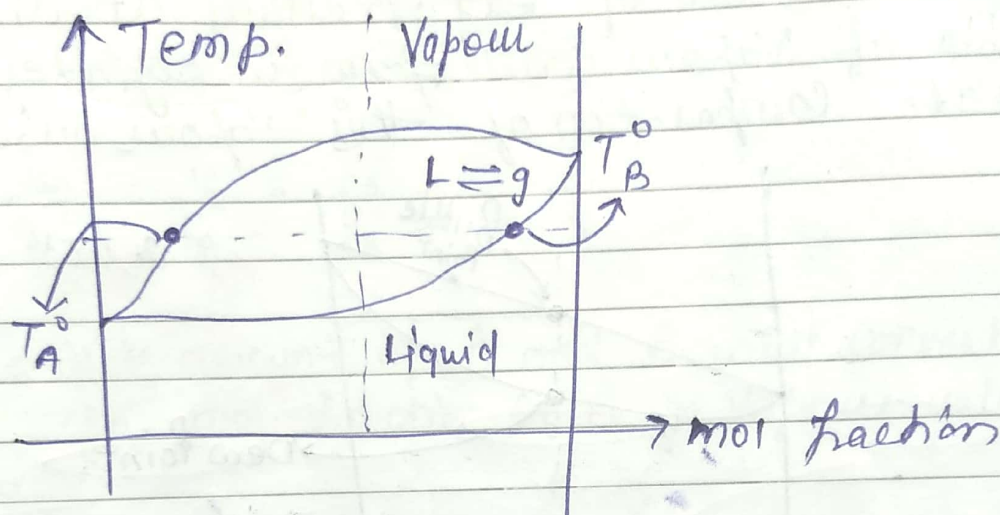 Temp.
Vapour
L ⇌ g
T°B
T°A
Liquid
mol fraction